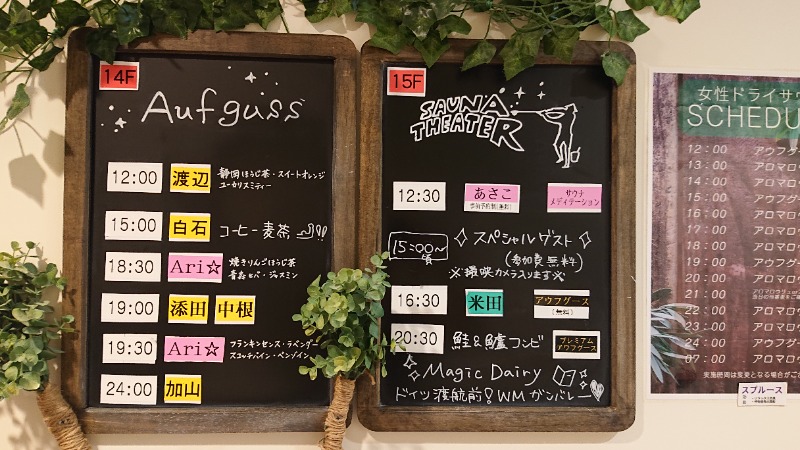 14F
Aufguss
12:00 渡辺 静岡ほうじ茶・スイートオレンジ
ユーカリスミティー
15:00 白石 コーヒー麦茶
18:30 Ari☆ 焼きりんごほうじ茶
青森ヒバ・ジャスミン
19:00 添田 中根
19:30 Ari☆ フランキンセンス・ラベンダー
スコッチパイン・ベンゾイン
24:00 加山
15F
SAUNA
THEATER
12:30 あさこ サウナ
メディテーション
15:00〜頃 スペシャルゲスト
(参加費無料)
※撮影カメラ入ります※
16:30 米田 アウフグース
(無料)
20:30 鮭&鱸コンビ プレミアム
アウフグース
Magic Dairy
ドイツ渡航前!WMガンバレー
女性ドライサウ
SCHEDU
12:00 アウフグ
13:00 アロマロ
14:00 アロマロ
15:00 アウフグ
16:00 アロマロ
17:00 アロマロ
18:00 アロマロ
19:00 アロマロ
20:00 アロマロ
21:00
22:00 アロマロ
23:00 アロマロ
24:00 アウフグ
07:00 アロマロ
実施時間は変更となる場合がご
スプルース